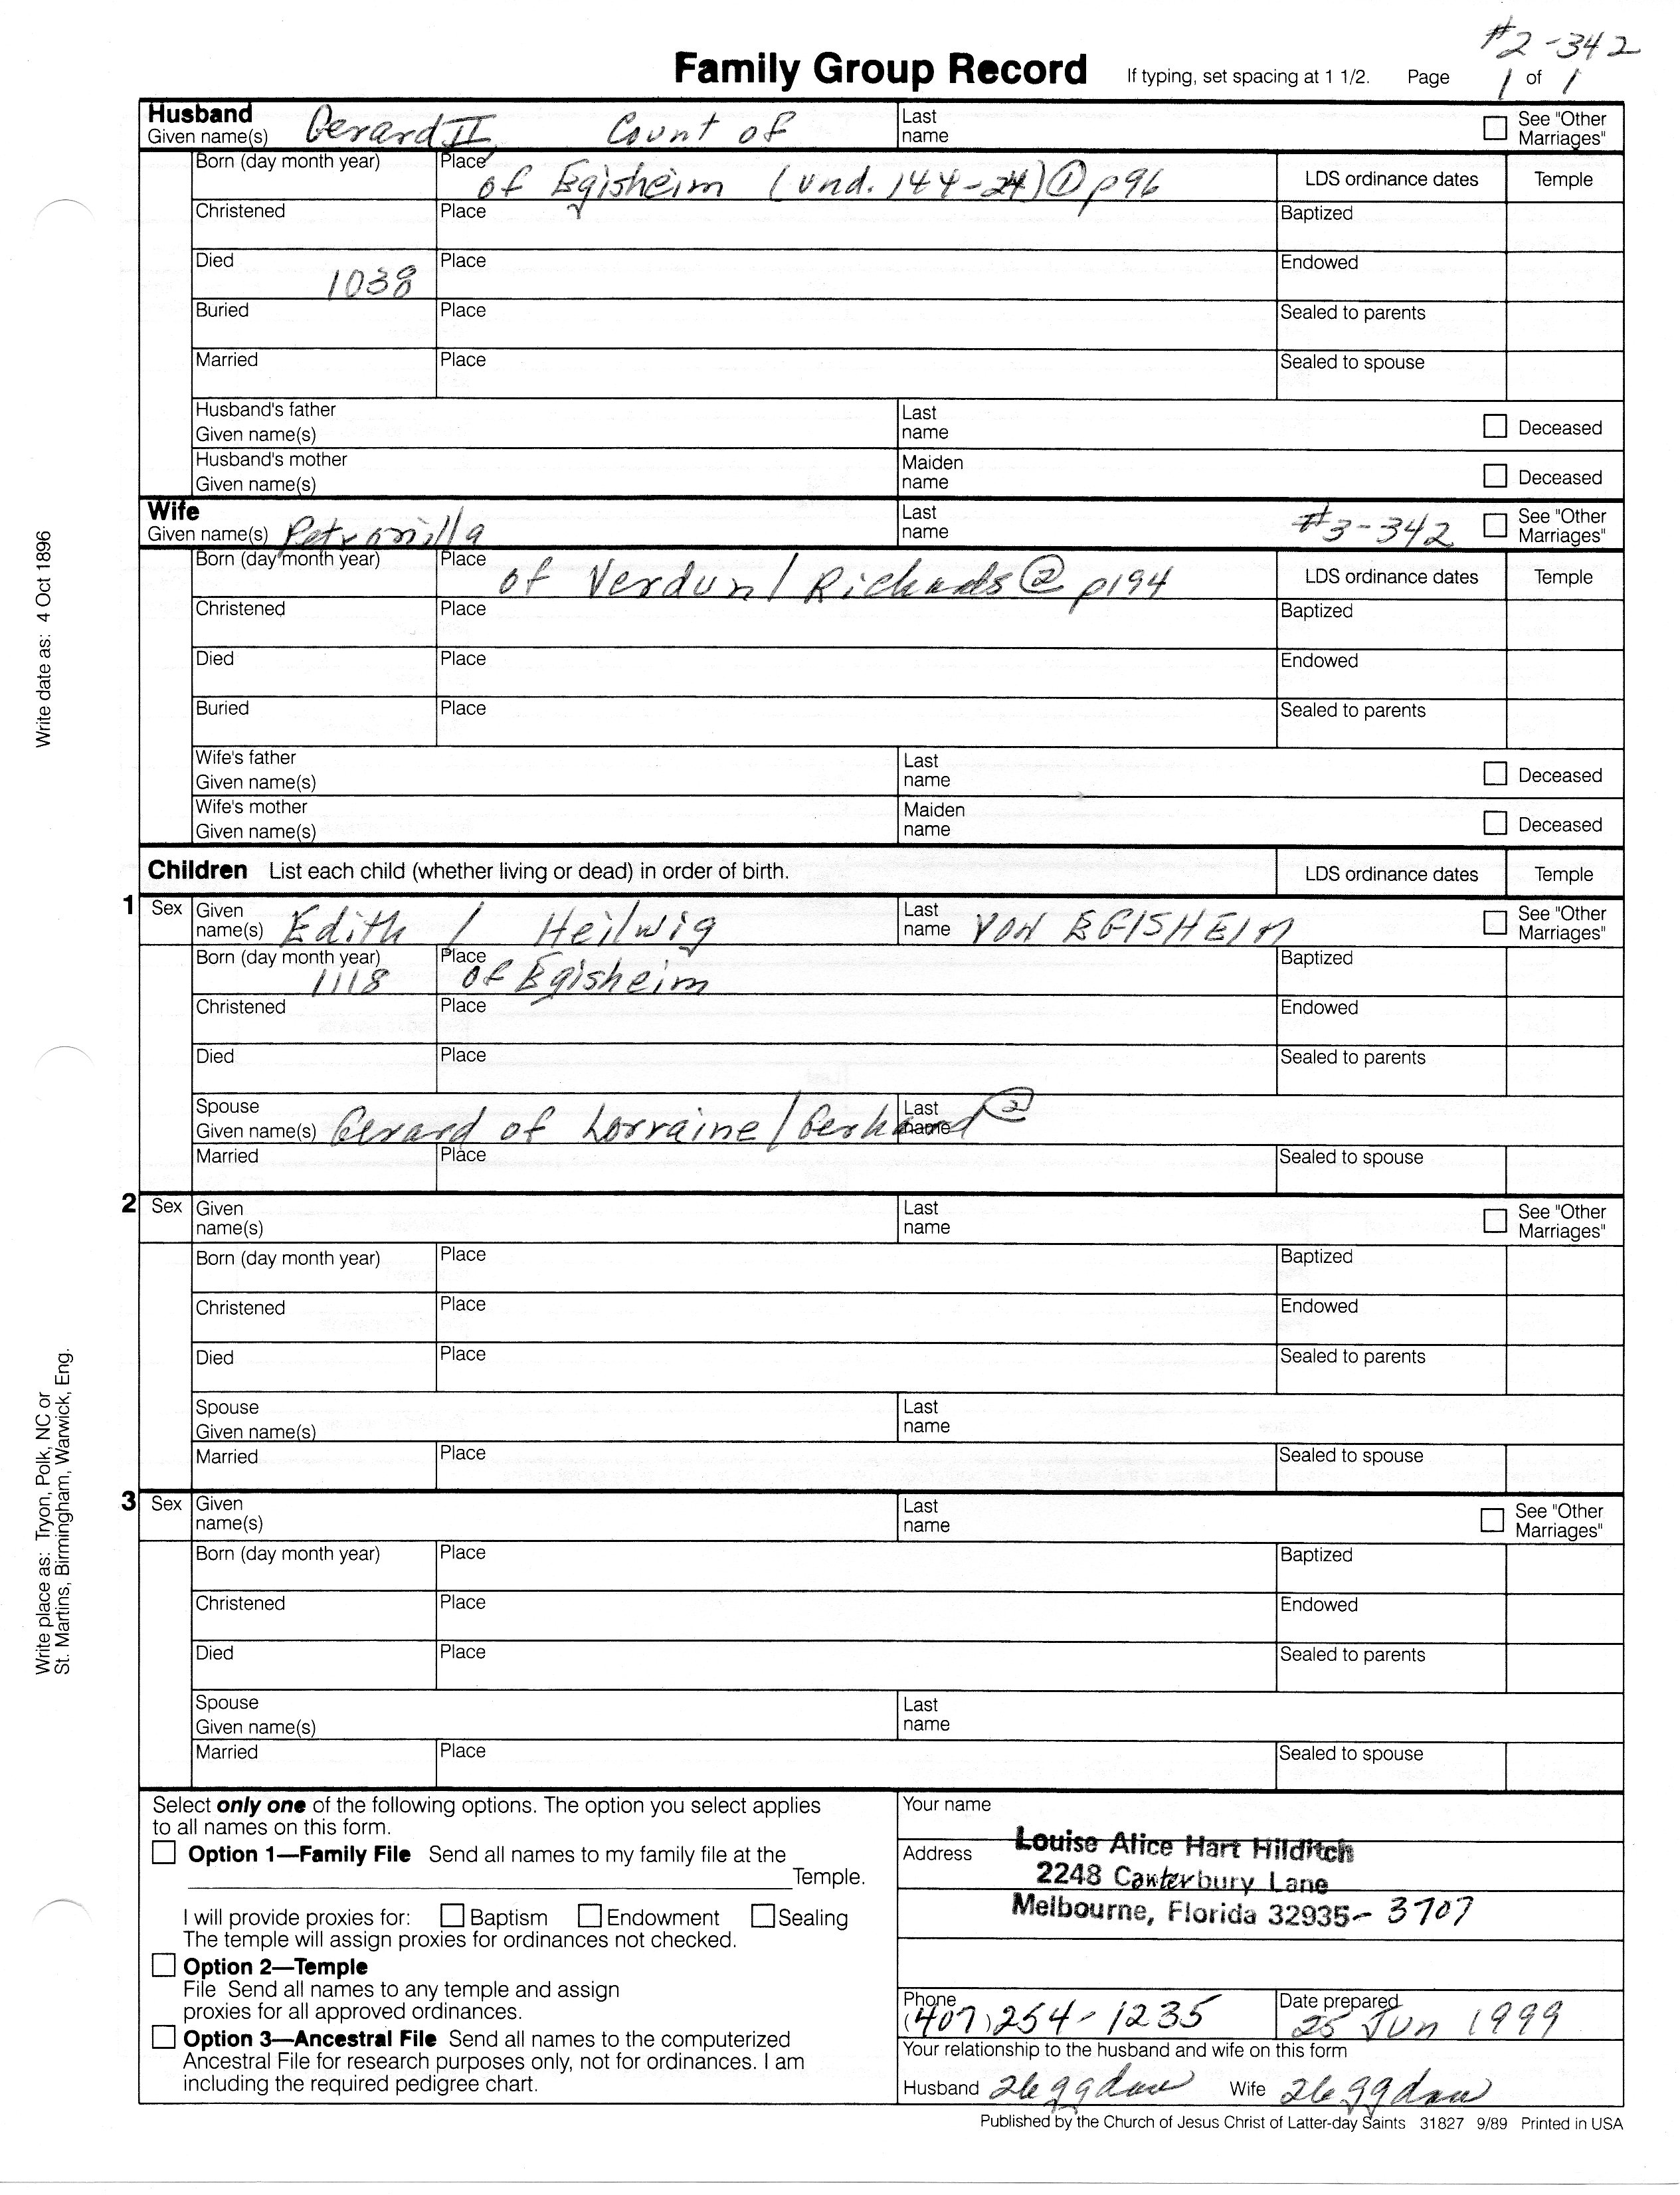 #2-342
Family Group Record If typing, set spacing at 1 1/2. Page 1 of 1
Husband
Given name(s) Gerard II Count of Last name See "Other Marriages"
Born (day month year) Place of Egisheim (und. 144-24) ① p96 LDS ordinance dates Temple
Christened Place Baptized
Died 1038 Place Endowed
Buried Place Sealed to parents
Married Place Sealed to spouse
Husband's father
Given name(s) Last name Deceased
Husband's mother
Given name(s) Maiden name Deceased
Wife
Given name(s) Petronilla Last name #3-342 See "Other Marriages"
Born (day month year) Place of Verdun / Richards ② p194 LDS ordinance dates Temple
Christened Place Baptized
Died Place Endowed
Buried Place Sealed to parents
Wife's father
Given name(s) Last name Deceased
Wife's mother
Given name(s) Maiden name Deceased
Children List each child (whether living or dead) in order of birth. LDS ordinance dates Temple
1 Sex Given name(s) Edith / Heilwig Last name VON EGISHEIM See "Other Marriages"
Born (day month year) 1118 Place of Egisheim Baptized
Christened Place Endowed
Died Place Sealed to parents
Spouse
Given name(s) Gerard of Lorraine / Gerhard ② Last name
Married Place Sealed to spouse
2 Sex Given name(s) Last name See "Other Marriages"
Born (day month year) Place Baptized
Christened Place Endowed
Died Place Sealed to parents
Spouse
Given name(s) Last name
Married Place Sealed to spouse
3 Sex Given name(s) Last name See "Other Marriages"
Born (day month year) Place Baptized
Christened Place Endowed
Died Place Sealed to parents
Spouse
Given name(s) Last name
Married Place Sealed to spouse
Select only one of the following options. The option you select applies
to all names on this form.
Option 1—Family File Send all names to my family file at the
Temple.
I will provide proxies for: Baptism Endowment Sealing
The temple will assign proxies for ordinances not checked.
Option 2—Temple
File Send all names to any temple and assign
proxies for all approved ordinances.
Option 3—Ancestral File Send all names to the computerized
Ancestral File for research purposes only, not for ordinances. I am
including the required pedigree chart.
Your name
Louise Alice Hart Hilditch
Address 2248 Canterbury Lane
Melbourne, Florida 32935-3707
Phone (407) 254-1235 Date prepared 25 Jun 1999
Your relationship to the husband and wife on this form
Husband 26 ggdau Wife 26 ggdau
Published by the Church of Jesus Christ of Latter-day Saints 31827 9/89 Printed in USA
Write date as: 4 Oct 1896
Write place as: Tryon, Polk, NC or
St. Martins, Birmingham, Warwick, Eng.